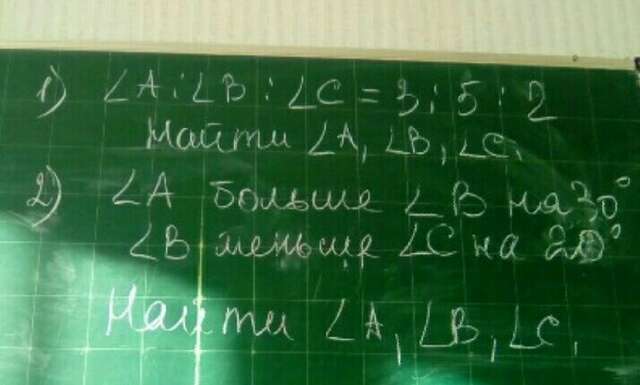 1) ∠A : ∠B : ∠C = 3 : 5 : 2
Найти ∠A, ∠B, ∠C.
2) ∠A больше ∠B на 30°
∠B меньше ∠C на 20°
Найти ∠A, ∠B, ∠C.